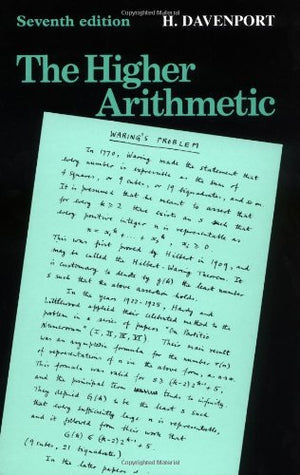 Copyrighted Material
Seventh edition H. DAVENPORT
The Higher
Arithmetic
WARING'S PROBLEM
In 1770, Waring made the statement that
every number is expressible as the sum of
4 squares, or 9 cubes, or 19 biquadrates, and so on
It is presumed that he meant to assert that
for every k ≥ 2 there exists an s such that
every positive integer n is representable as
n = x₁ᵏ + ... + xₛᵏ, xᵢ ≥ 0.
This was first proved by Hilbert in 1909, and
may be called the Hilbert-Waring Theorem. It
is customary to denote by g(k) the least number
s such that the above assertion holds.
In the years 1922-1925, Hardy and
Littlewood applied their celebrated method to the
problem in a series of papers "On Partitio
Numerorum" (I, II, III, VI) Their main result
was an asymptotic formula for the number r(n)
of representations of n in the above form,
This formula was valid for s ≥ (k-2)2ᵏ⁻¹ + 5,
and the principal term tends to infinity.
They defined G(k) to be the least s such
that every sufficiently large n is representable,
and it followed from their work that
G(k) ≤ (k-2)2ᵏ⁻¹ + 5.
(9 cubes, 21 biquadrates)
In the later papers
Copyrighted Material